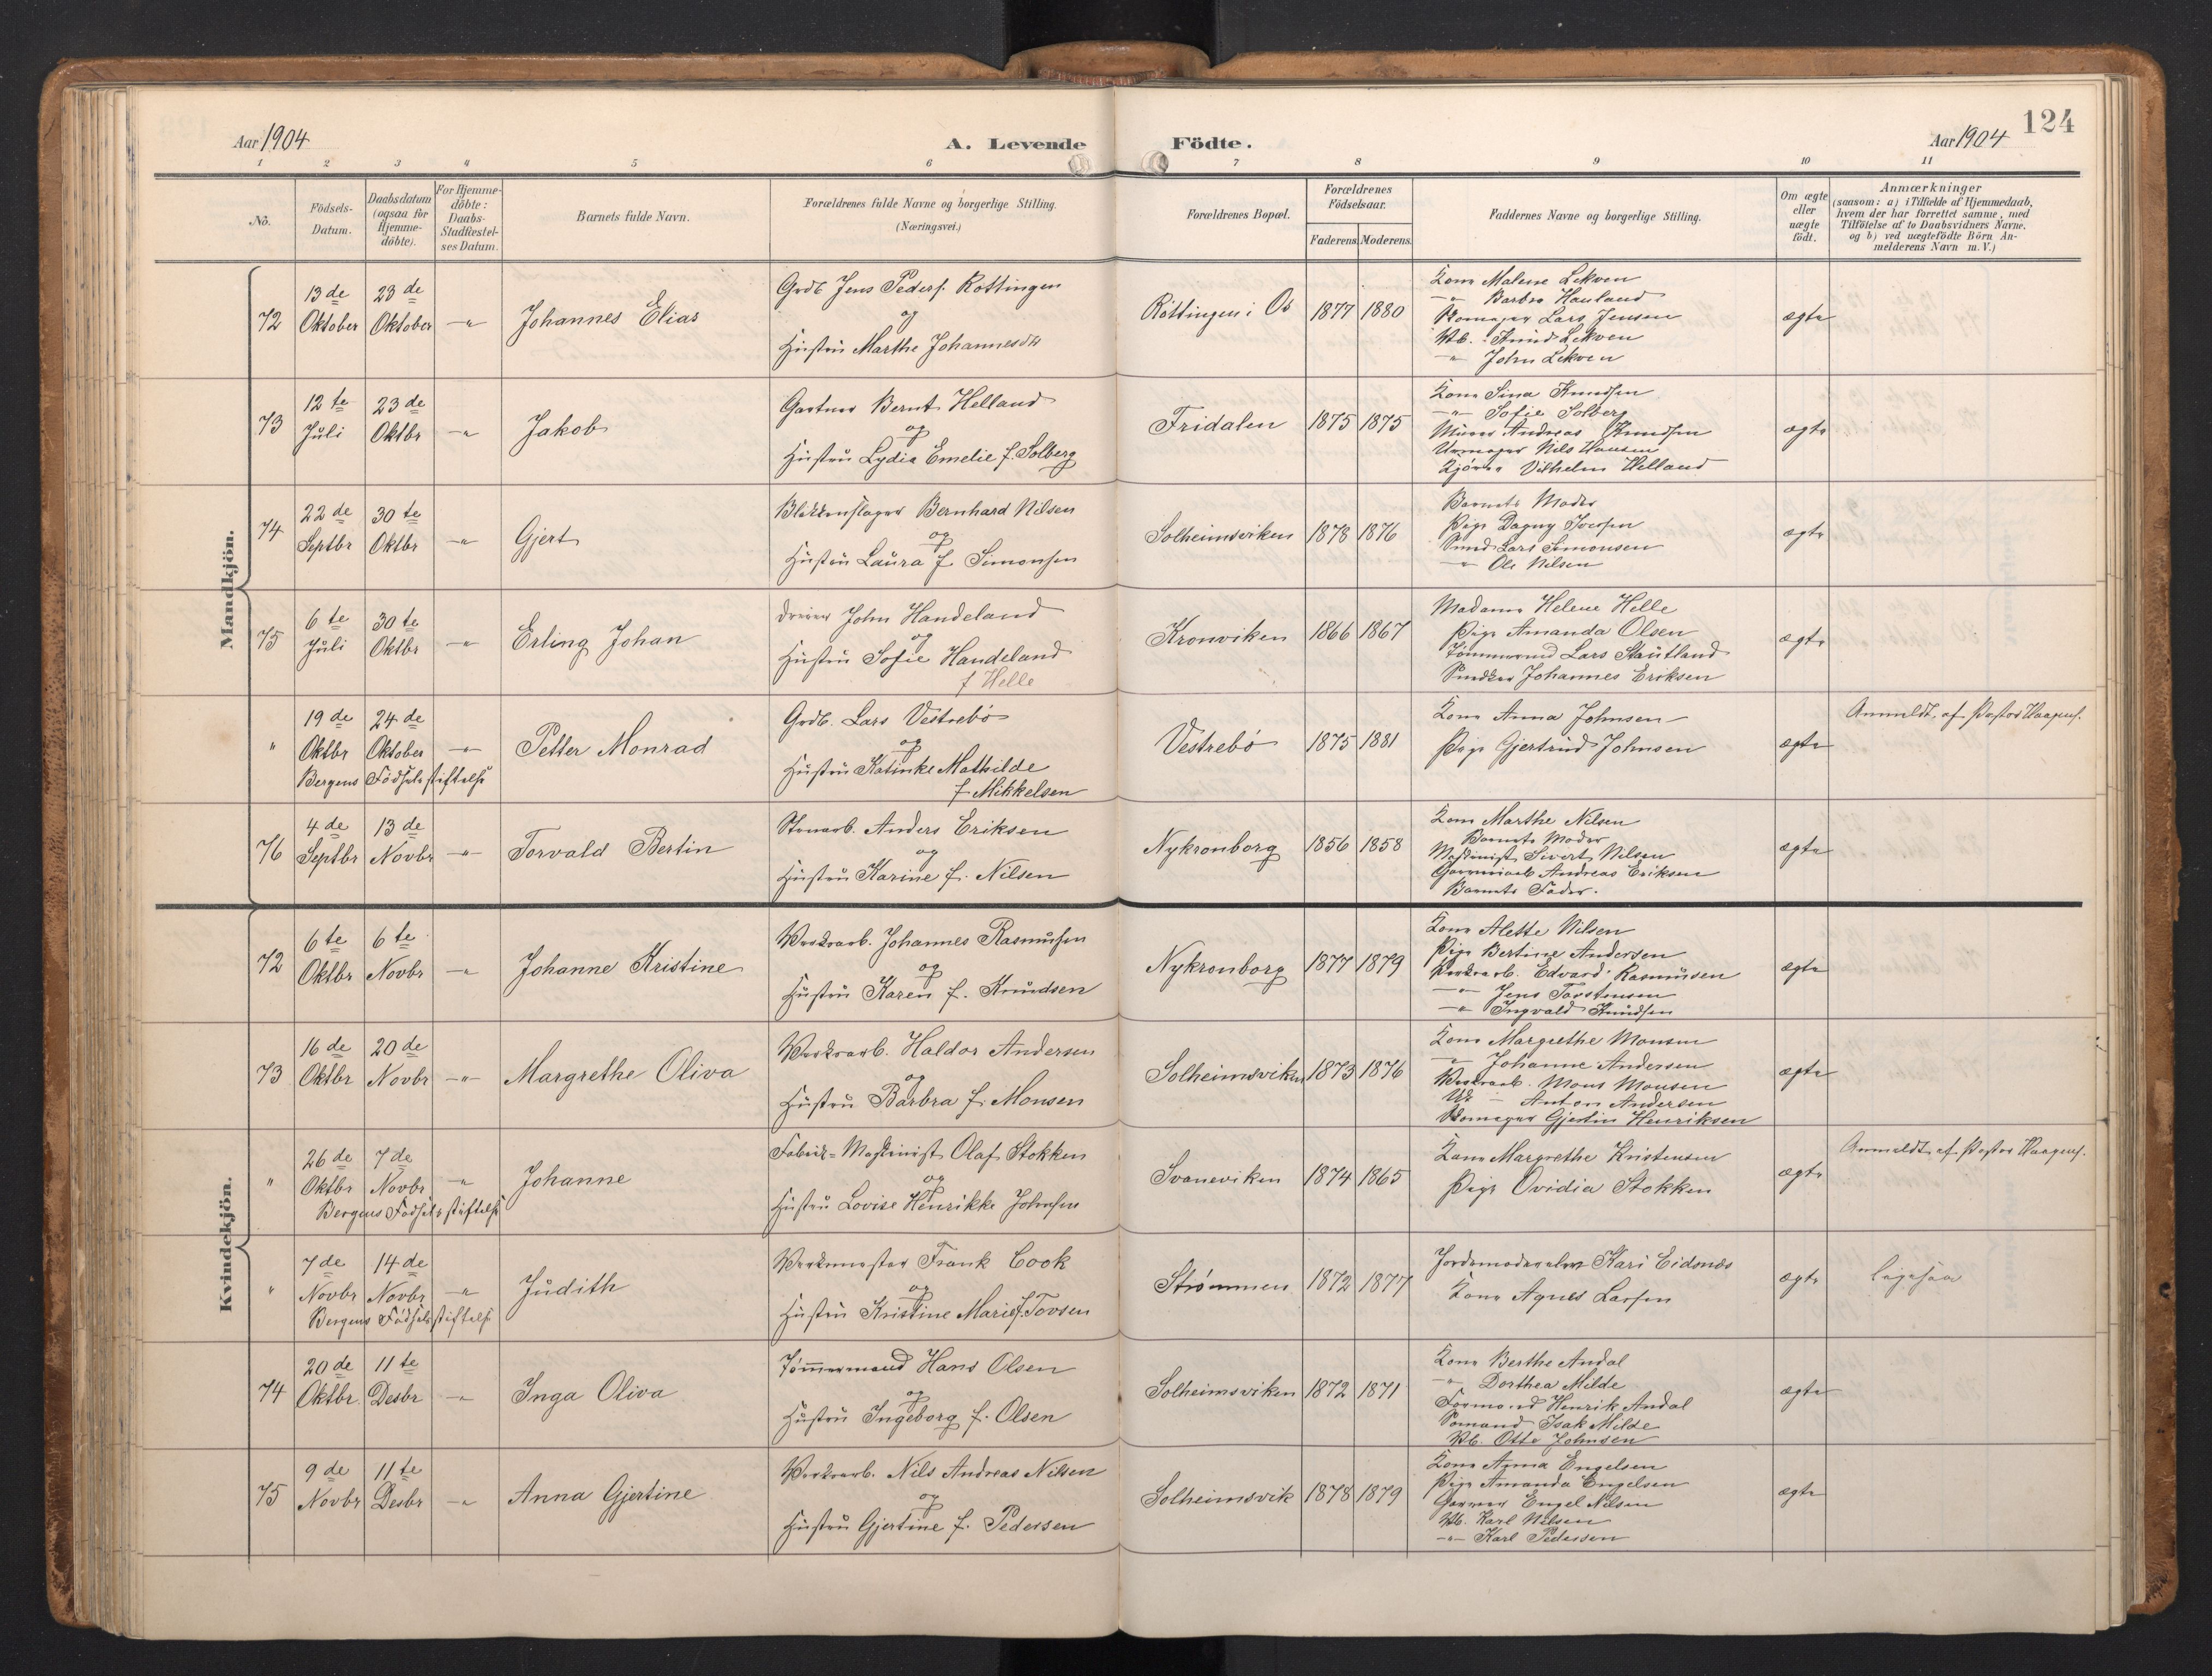 Aar 1904
A. Levende
Födte.
Aar 1904
124
1 2 3 4 5 6 7 8 9 10 11
Nö.
Födsels-Datum.
Daabsdatum (ogsaa for Hjemme-döbte).
For Hjemme-döbte: Daabs-Stadfæstel-ses Datum.
Barnets fulde Navn.
Forældrenes fulde Navne og borgerlige Stilling.
(Næringsvei.)
Forældrenes Bopæl.
Forældrenes Födselsaar.
Faderens. Moderens.
Faddernes Navne og borgerlige Stilling.
Om ægte eller uægte födt.
Anmærkninger
(saasom: a) i Tilfælde af Hjemmedaab,
hvem der har forrettet samme, med
Tilföielse af to Daabsvidners Navne.
og b) ved uægtefödte Börn An-
melderens Navn m. V.)
Mandkjön.
72
13de Oktober
23de Oktober
-"-
Johannes Elias
Grdb Jens Peders. Rottingen
og
Hustru Marthe Johannesdtr
Röttingen i Os
1877 1880
Kone Malene Lekven
-"- Barbra Hauland
Skomager Lars Jensen
Ub. Amund Lekven
-"- John Lekven
ægte
73
12te Juli
23de Oktbr
-"-
Jakob
Gartner Bernt Helland
og
Hustru Lydia Emelie f. Solberg
Fridalen
1875 1875
Kone Sina Knudsen
-"- Sofie Solberg
Murer Andreas Knudsen
Urmager Nils Hansen
Vilhelm Helland
ægte
74
22de Septbr
30te Oktbr
-"-
Gjert
Blikkenslager Bernhard Nilsen
og
Hustru Laura f. Simonsen
Solheimsviken
1878 1876
Barnets Moder
Pige Dagny Iversen
Smed Lars Simonsen
-"- Ole Nilsen
ægte
75
6te Juli
30te Oktbr
-"-
Erling Johan
Dreier John Handeland
og
Hustru Sofie Handeland
f Helle
Kronviken
1866 1867
Madame Helene Helle
Pige Amanda Olsen
Tömmermd Lars Stautland
Snedker Johannes Eriksen
ægte
"
19de Oktbr
24de Oktober
-"-
Bergens Födselsstiftelse
Petter Monrad
Grdb. Lars Vestrebö
og
Hustru Katinke Mathilde
f. Mikkelsen
Vestrebö
1875 1881
Kone Anna Johnsen
Pige Gjertrud Johnsen
ægte
Anmeldt af Pastor Waagens.
76
4de Septbr
13de Novbr
-"-
Torvald Bertin
Stenarb. Anders Eriksen
og
Hustru Karine f. Nilsen
Nykronborg
1856 1858
Kone Marthe Nilsen
Barnets Moder
Maskinist Sivert Nilsen
Andreas Eriksen
Barnets Fader.
ægte
Kvindekjön.
72
6te Oktbr
6te Novbr
-"-
Johanne Kristine
Verksarb. Johannes Rasmusen
og
Hustru Karen f. Knudsen
Nykronborg
1877 1879
Kone Alette Nilsen
Pige Bertine Andersen
Verksarb. Edvard Rasmusen
-"- Jens Torstensen
-"- Ingvald Knudsen
ægte
73
16de Oktbr
20de Novbr
-"-
Margrethe Oliva
Verksarb. Haldor Andersen
og
Hustru Barbra f. Monsen
Solheimsviken
1873 1876
Kone Margrethe Monsen
-"- Johanne Andersen
Verksarb. Mons Monsen
Anton Andersen
Skomager Gjertin Henriksen
ægte
"
26de Oktbr
7de Novbr
-"-
Bergens Födselsstiftelse
Johanne
Fabrik-Maskinist Olaf Stokken
og
Hustru Lovise Henrikke Johnsen
Svaneviken
1874 1865
Kone Margrethe Kristensen
Pige Ovidia Stokken
ægte
Anmeldt af Pastor Waagens.
"
7de Novbr
14de Novbr
-"-
Bergens Födselsstiftelse
Judith
Verkmester Frank Cook
og
Hustru Kristine Marie f. Tovsen
Strömmen
1872 1877
Jordemoderelev Kari Eidsnæs
Kone Agnes Larsen
ægte
ligesaa
74
20de Oktbr.
11te Desbr
-"-
Inga Oliva
Tömmermand Hans Olsen
og
Hustru Ingeborg f. Olsen
Solheimsviken
1872 1871
Kone Berthe Andal
-"- Dorthea Milde
Formand Henrik Andal
Sömand Isak Milde
Ub. Otto Johnsen
ægte
75
9de Novbr
11te Desbr
-"-
Anna Gjertine
Verksarb. Nils Andreas Nilsen
og
Hustru Gjertine f. Pedersen
Solheimsvik
1878 1879
Kone Anna Engelsen
Pige Amanda Engelsen
Garver Engel Nilsen
Ub. Karl Nilsen
-"- Karl Pedersen
ægte